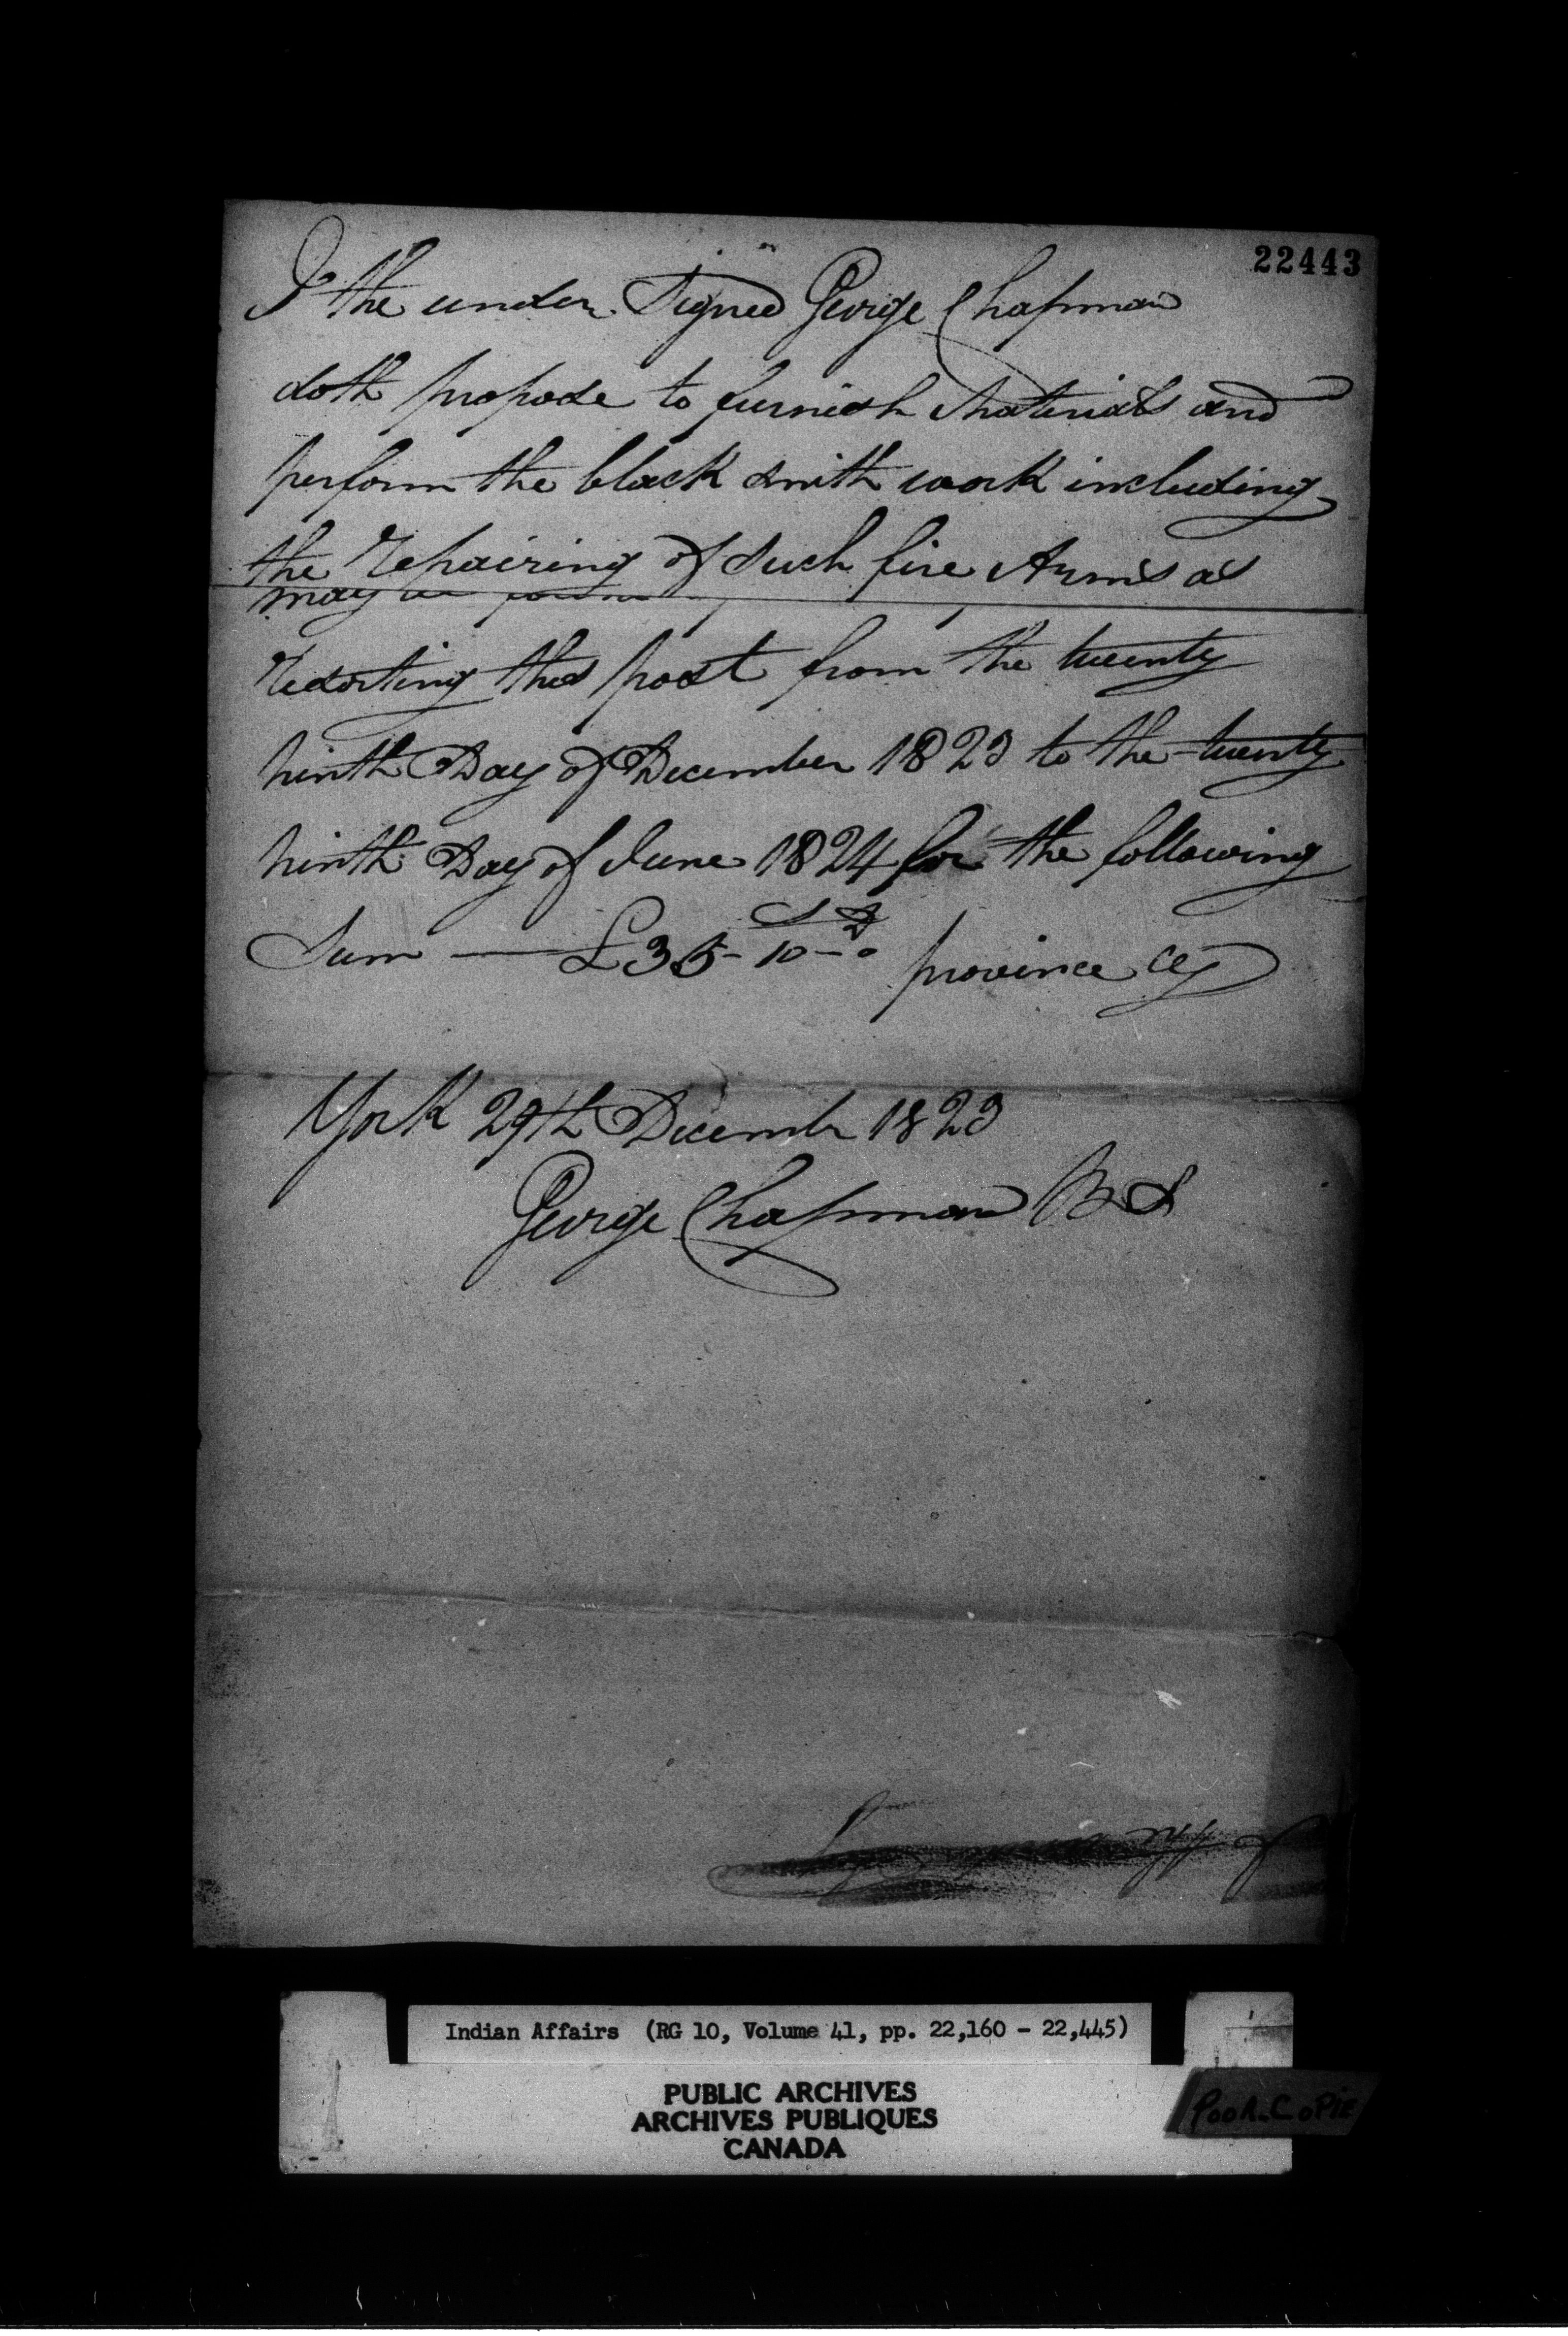 22443
I the under Signed George Chapman
doth propose to furnish Materials and
perform the black smith work including
the repairing of Such fire Arms as
may be
resorting this post from the twenty
ninth Day of December 1823 to the twenty
ninth Day of June 1824 for the following
Sum — £35 - 10 - 0 province Cy
S D
York 29th December 1823
George Chapman B S
Indian Affairs (RG 10, Volume 41, pp. 22,160 - 22,445)
PUBLIC ARCHIVES
ARCHIVES PUBLIQUES
CANADA
POOR COPIE